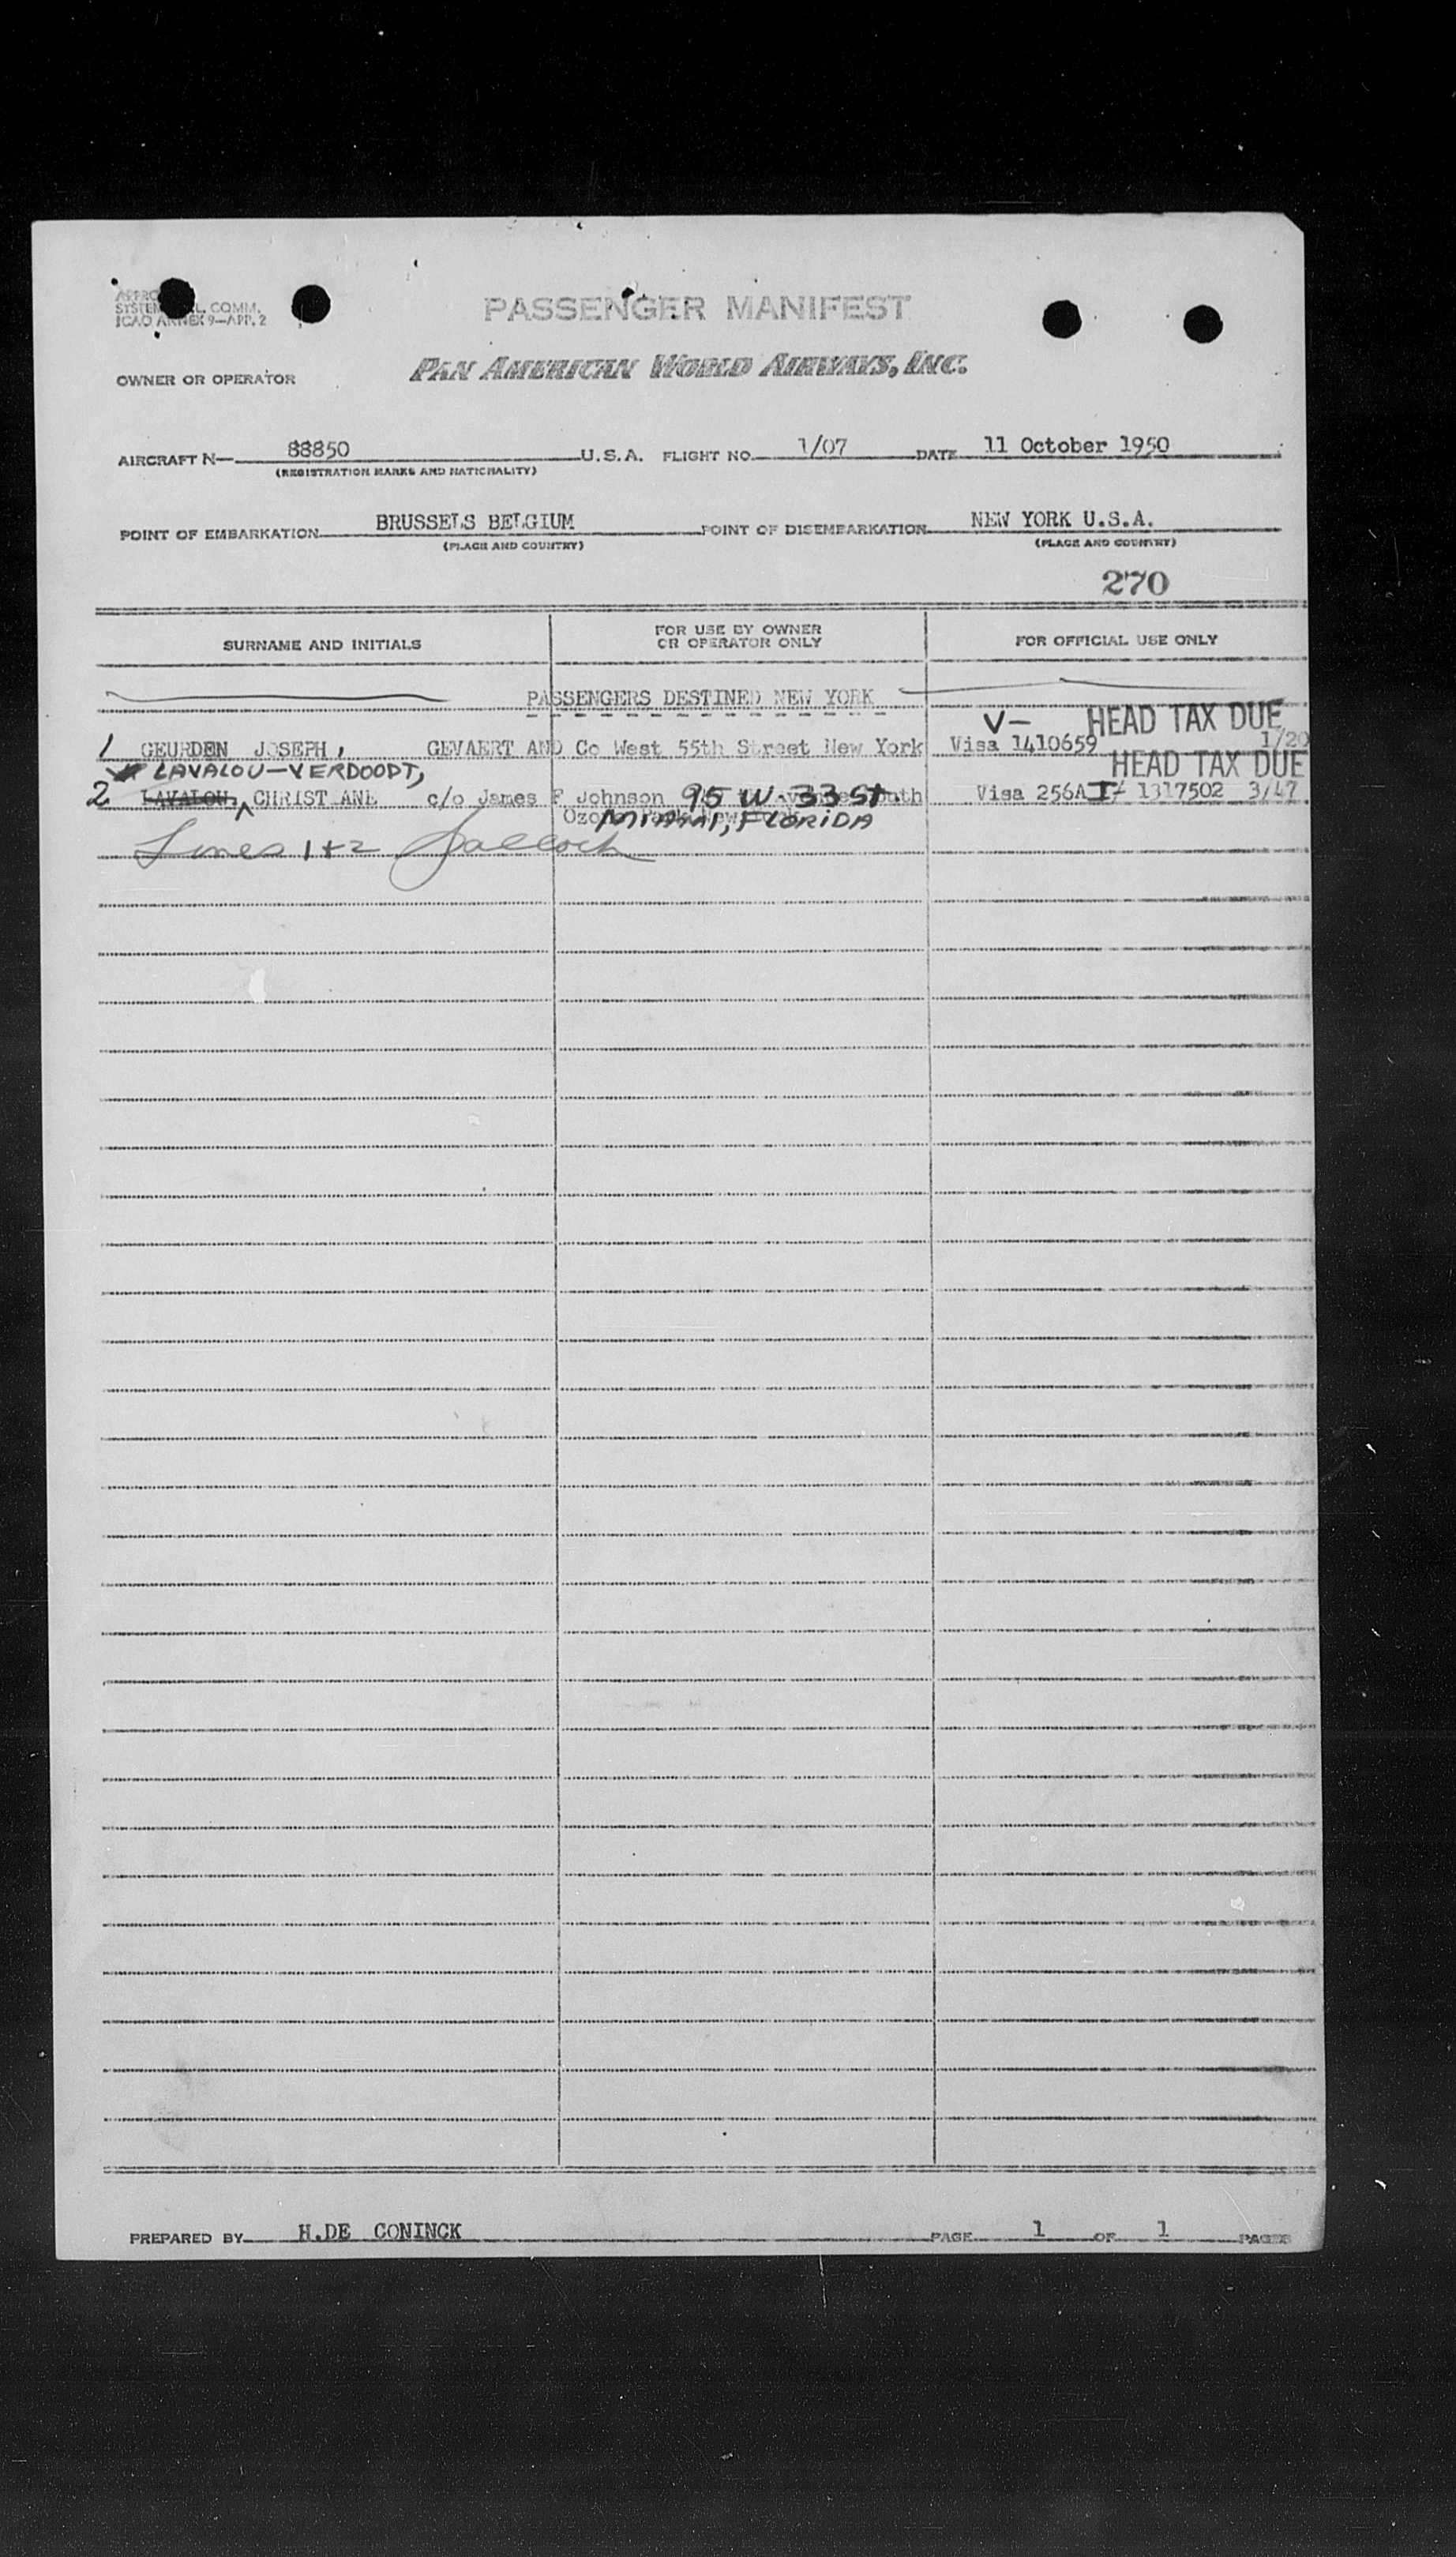 PASSENGER MANIFEST
SYSTEM L. COMM.
ICAO ANNEX 9—APP. 2
OWNER OR OPERATOR PAN AMERICAN WORLD AIRWAYS, INC.
AIRCRAFT N— 88850 U.S.A. FLIGHT NO. 1/07 DATE 11 October 1950
(REGISTRATION MARKS AND NATIONALITY)
POINT OF EMBARKATION BRUSSELS BELGIUM POINT OF DISEMBARKATION NEW YORK U.S.A.
(PLACE AND COUNTRY) (PLACE AND COUNTRY)
270
SURNAME AND INITIALS FOR USE BY OWNER OR OPERATOR ONLY FOR OFFICIAL USE ONLY
PASSENGERS DESTINED NEW YORK
V— HEAD TAX DUE
1 GEURDEN JOSEPH, GEVAERT AND Co West 55th Street New York Visa 1410659 1/20
LAVALOU—VERDOODT, HEAD TAX DUE
2 LAVALOU, CHRISTIANE c/o James F Johnson 95 W. 33 St. Visa 256A I 1317502 3/47
MIAMI, FLORIDA
Lines 1+2
PREPARED BY H.DE CONINCK PAGE 1 OF 1 PAGES